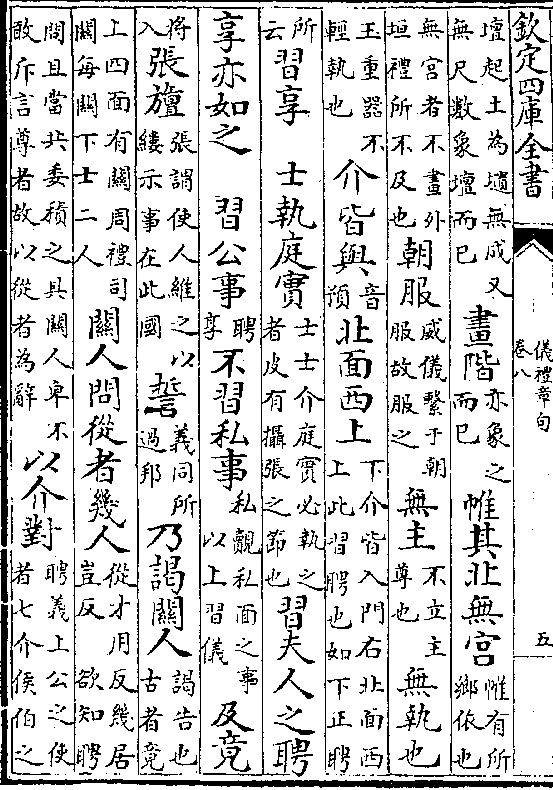 欽定四庫全書 儀禮章句 卷八 五
壇起土為壝無成又無尺數象壇而已畫階亦象之而已帷其北無宮帷有所鄉依也
無宮者不畫外垣禮所不及也朝服威儀繫于朝服故服之無主不立主尊也無執也
玉重器不輕執也介皆與音預北面西上下介皆入門右北面西上此習聘也如下正聘
所云習享 士執庭實士士介庭實必執之者皮有攝張之節也習夫人之聘
享亦如之 習公事聘享不習私事私覿私面之事以上習儀及竟
將入張旜張謂使人維之以縷示事在此國誓義同所過邦乃謁關人謁告也古者竟
上四面有關周禮司關每關下士二人關人問從者幾人從才用反幾居豈反 欲知聘
問且當共委積之具關人卑不敢斥言尊者故以從者為辭以介對聘義上公之使者七介侯伯之